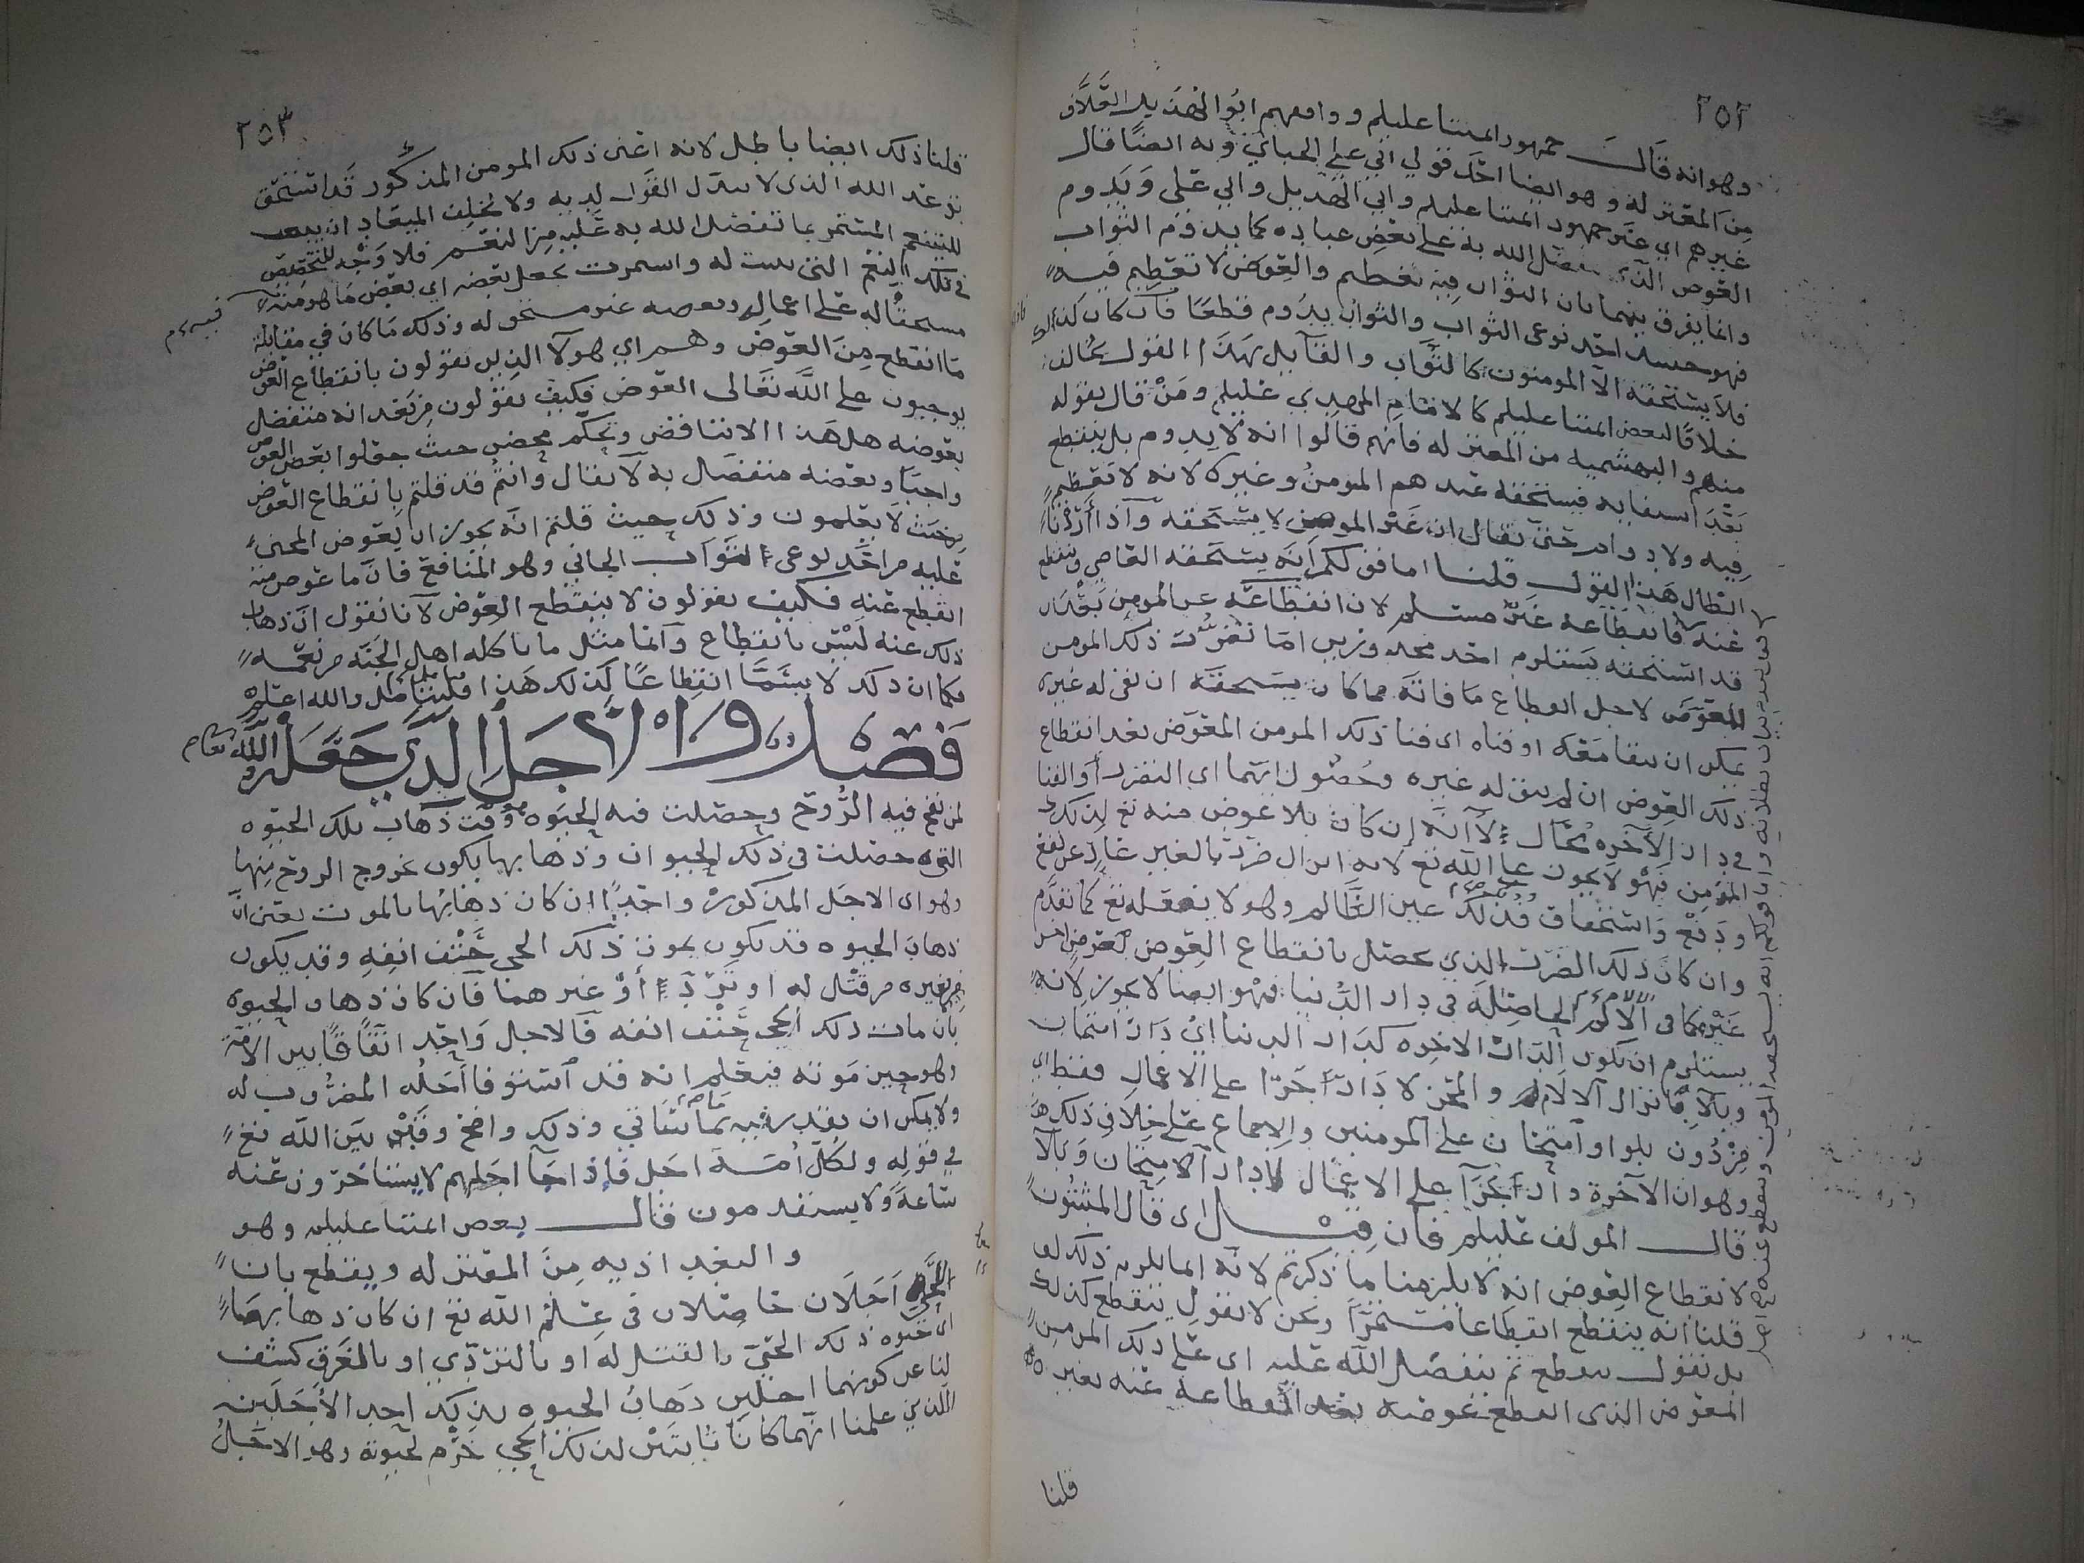 ٢٥٢
وهو انه قال جمهور ائمتنا عليلم ووافقهم ابو الهذيل العلاف
من المعتزله وهو ايضا احد قولي ابي علي الجبائي وبه ايضًا قال
غيرهم اي غير جمهور ائمتنا عليلم وابي الهذيل وابي علي ويدوم
العوض الذي يتفضل الله به على بعض عباده كما يدوم الثواب
وانما يفرق بينهما بان الثواب فيه تعظيم والعوض لا تعظيم فيه
فهو حينئذ احد نوعي الثواب والثواب يدوم قطعًا فان كان كذلك
فلا يستحقه الا المومنون كالثواب والقايل بهذا القول يخالف
خلافًا لبعض ائمتنا عليلم كالامام المهدي عليلم ومن قال بقوله
منهم والبهشميه من المعتزله فانهم قالوا انه لا يدوم بل ينقطع
بعد استيفايه فيستحقه عندهم المومن وغيره لانه لا تعظيم
فيه ولا دوام حتى يقال ان غير المومن لا يستحقه واذا اردنا
ابطال هذا القول قلنا اما قولكم انه يستحقه العاصي وينقطع
عنه فانقطاعه غير مسلم لان انقطاعه عن المومن بعد ان
قد استحقه يستلزم احد محذورين اما تضرر ذلك المومن
المعوض لاجل انقطاع ما فاته مما كان يستحقه ان بقي له غيره
يمكن ان يبقا معه او فناه اي فنا ذلك المومن المعوض بعد انقطاع
ذلك العوض ان لم يبق له غيره وحصول ايهما اي التضرر او الفنا
في دار الآخره محال لانه ان كان بلا عوض منه تع لذلك
المومن فهو لا يجوز على الله تع لانه انزال ضرر بالغير عارٍ عن نفع
ودفع واستحقاق وذلك عين الظلم وهو لا يفعله تع كما تقدم
وان كان ذلك الضرر الذي يحصل بانقطاع العوض لعوض اخر
غيره كما في الالام الحاصلة في دار الدنيا فهو ايضا لا يجوز لانه
يستلزم ان تكون الدار الاخره كدار الدنيا اي دار امتحان
وبلا بانزال الالام والمحن لا دار جزا على الاعمال فقط اي
من دون بلوا وامتحان على المومنين والاجماع على خلاف ذلك
وهو ان الآخرة دار جزآ على الاعمال لا دار الامتحان وبلا
قال المولف عليلم فان قيل اي قال المثبتون
لانقطاع العوض انه لا يلزمنا ما ذكرتم لانه انما يلزم ذلك لو
قلنا انه ينقطع انقطاعا مستمرًا ونحن لا نقول ينقطع كذلك
بل نقول ينقطع ثم يتفضل الله عليه اي على ذلك المومن
المعوض الذي انقطع عوضه بعد انقطاعه عنه بغيره
قلنا
٢٥٣
قلنا ذلك ايضا باطل لانه اعني ذلك المومن المذكور قد استحق
بوعد الله الذي لا يبدل القول لديه ولا يخلف الميعاد ان يبعث
للتنعم المستمر بما تفضل الله به عليه من النعم فلا وجه لتخصيص
تلك النعم التي ليست له واستمرت بجعل بعضه اي بعض ما هو منه
مستحقًا له على اعماله وبعضه غير مستحق له وذلك ما كان في مقابلة
ما انقطع من العوض وهم اي هولآ الذين يقولون بانقطاع العوض
يوجبون على الله تعالى العوض فكيف يقولون من بعد انه متفضل
بعوضه هل هذا الا تناقض وتحكم محض حيث جعلوا بعض العوض
واجبًا وبعضه متفضل به لا يقال وانتم قد قلتم بانقطاع العوض
من حيث لا تعلمون وذلك حيث قلتم انه يجوز ان يعوض المجني
عليه من احد نوعي ثواب الجاني وهو المنافع فان ما عوض منه
انقطع عنه فكيف تقولون لا ينقطع العوض لانا نقول ان ذهاب
ذلك عنه ليس بانقطاع وانما مثل ما ياكله اهل الجنه من نعمه
فكما ان ذلك لا يسمَّا انقطاعًا كذلك هذا فليتامل والله اعلم
فصل والاجل الذي جعله الله تعالى
لمن نفخ فيه الروح وحصلت فيه الحيوه وقت ذهاب تلك الحيوه
التي حصلت في ذلك الحيوان وذهابها يكون بخروج الروح منها
وهو اي الاجل المذكور واحدًا ان كان ذهابها بالموت يعني ان
ذهاب الحيوه قد يكون بموت ذلك الحي حتف انفه وقد يكون
من غيره من قتل له او تردٍ او غيرهما فان كان ذهاب الحيوه
بان مات ذلك الحي حتف انفه فالاجل واحد اتفاقًا بين الامة
وهو حين موته فيعلم انه قد استوفا اجله المضروب له
ولا يمكن ان يقدر فيه تمام ثاني وذلك واضح وقد بين الله تع
في قوله ولكل امة اجل فاذا جا اجلهم لا يستاخرون عنه
ساعة ولا يستقدمون قال بعض ائمتنا عليلم وهو
والبغداديه من المعتزله ويقطع بان
اجلان حاصلان في علم الله تع ان كان ذهابها
اي حيوه ذلك الحي بالقتل له او بالتردي او بالغرق كشف
لنا عن كونهما اجلين ذهاب الحيوه بذلك احد الاجلين
اللذين علمنا انهما كانا ثابتين لذلك الحي خرم لحيوته وهو الاجل